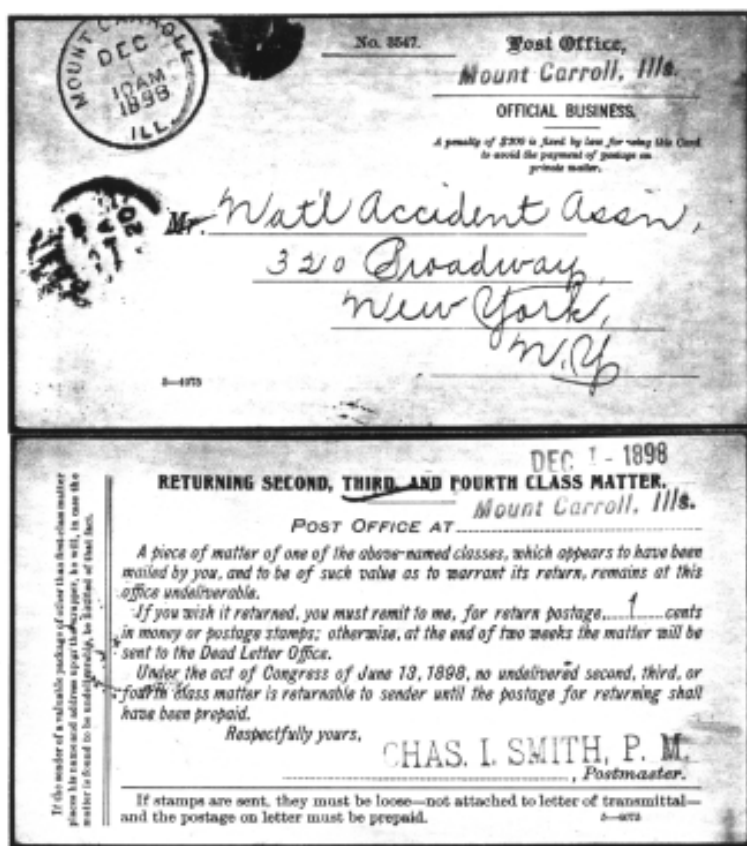 MOUNT CARROLL
DEC
1
10 AM
1898
ILL.
No. 3547.
Post Office,
Mount Carroll, Ills.
OFFICIAL BUSINESS.
A penalty of $300 is fixed by law for using this Card
to avoid the payment of postage on
private matter.
Mr. Nat'l Accident Assn,
320 Broadway,
New York,
N.Y
5—4973
DEC 1 - 1898
RETURNING SECOND, THIRD, AND FOURTH CLASS MATTER.
Mount Carroll, Ills.
POST OFFICE AT
A piece of matter of one of the above-named classes, which appears to have been
mailed by you, and to be of such value as to warrant its return, remains at this
office undeliverable.
If you wish it returned, you must remit to me, for return postage, 1 cents
in money or postage stamps; otherwise, at the end of two weeks the matter will be
sent to the Dead Letter Office.
Under the act of Congress of June 13, 1898, no undelivered second, third, or
fourth class matter is returnable to sender until the postage for returning shall
have been prepaid.
Respectfully yours,
CHAS. I. SMITH, P. M.
, Postmaster.
If stamps are sent, they must be loose—not attached to letter of transmittal—
and the postage on letter must be prepaid.
If the sender of a valuable package of other than first-class matter
places his name and address upon the wrapper, he will, in case the
matter is found to be undeliverable, be notified of that fact.